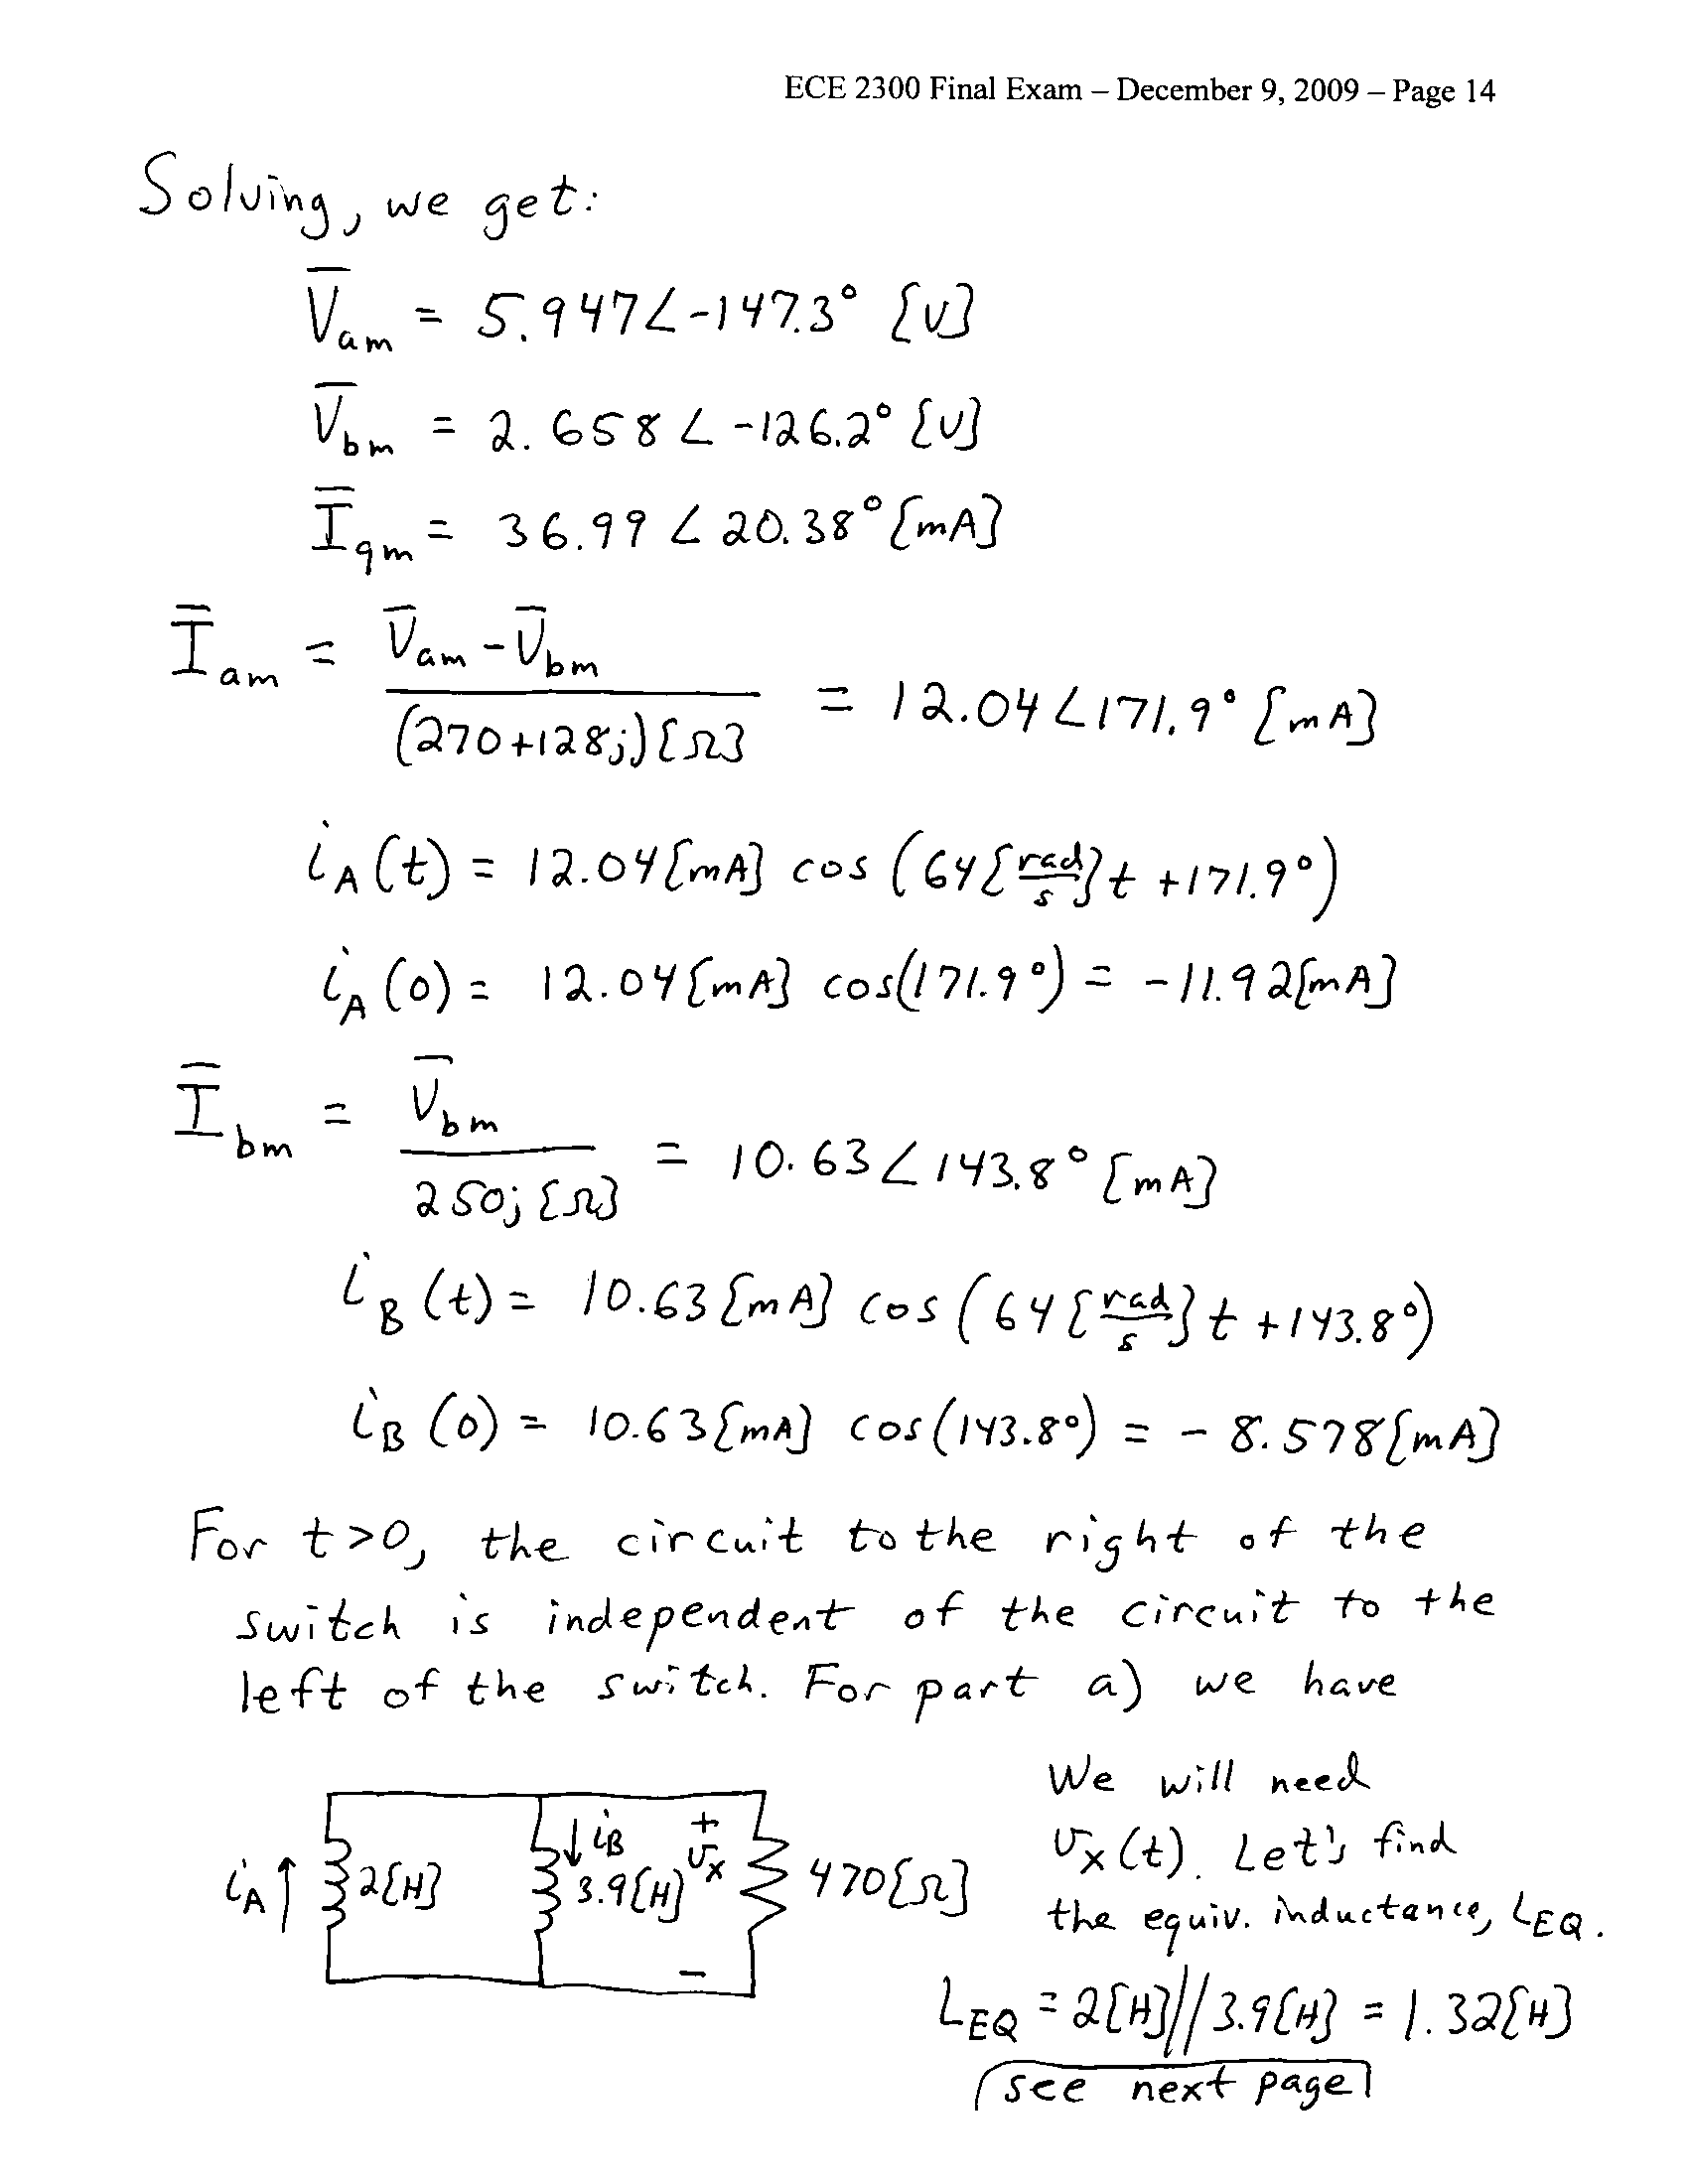 ECE 2300 Final Exam – December 9, 2009 – Page 14
Solving, we get:
V̅am = 5.947∠-147.3° [V]
V̅bm = 2.658∠-126.2° [V]
I̅qm = 36.99∠20.38° [mA]
I̅am = (V̅am - V̅bm) / (270+128j)[Ω] = 12.04∠171.9° [mA]
iA(t) = 12.04[mA] cos(64[rad/s]t +171.9°)
iA(0) = 12.04[mA] cos(171.9°) = -11.92[mA]
I̅bm = V̅bm / 250j[Ω] = 10.63∠143.8° [mA]
iB(t) = 10.63[mA] cos(64[rad/s]t +143.8°)
iB(0) = 10.63[mA] cos(143.8°) = -8.578[mA]
For t>0, the circuit to the right of the
switch is independent of the circuit to the
left of the switch. For part a) we have
iA 2[H] iB 3.9[H] + vx - 470[Ω]
We will need
vx(t). Let's find
the equiv. inductance, LEQ.
LEQ = 2[H]//3.9[H] = 1.32[H]
see next page